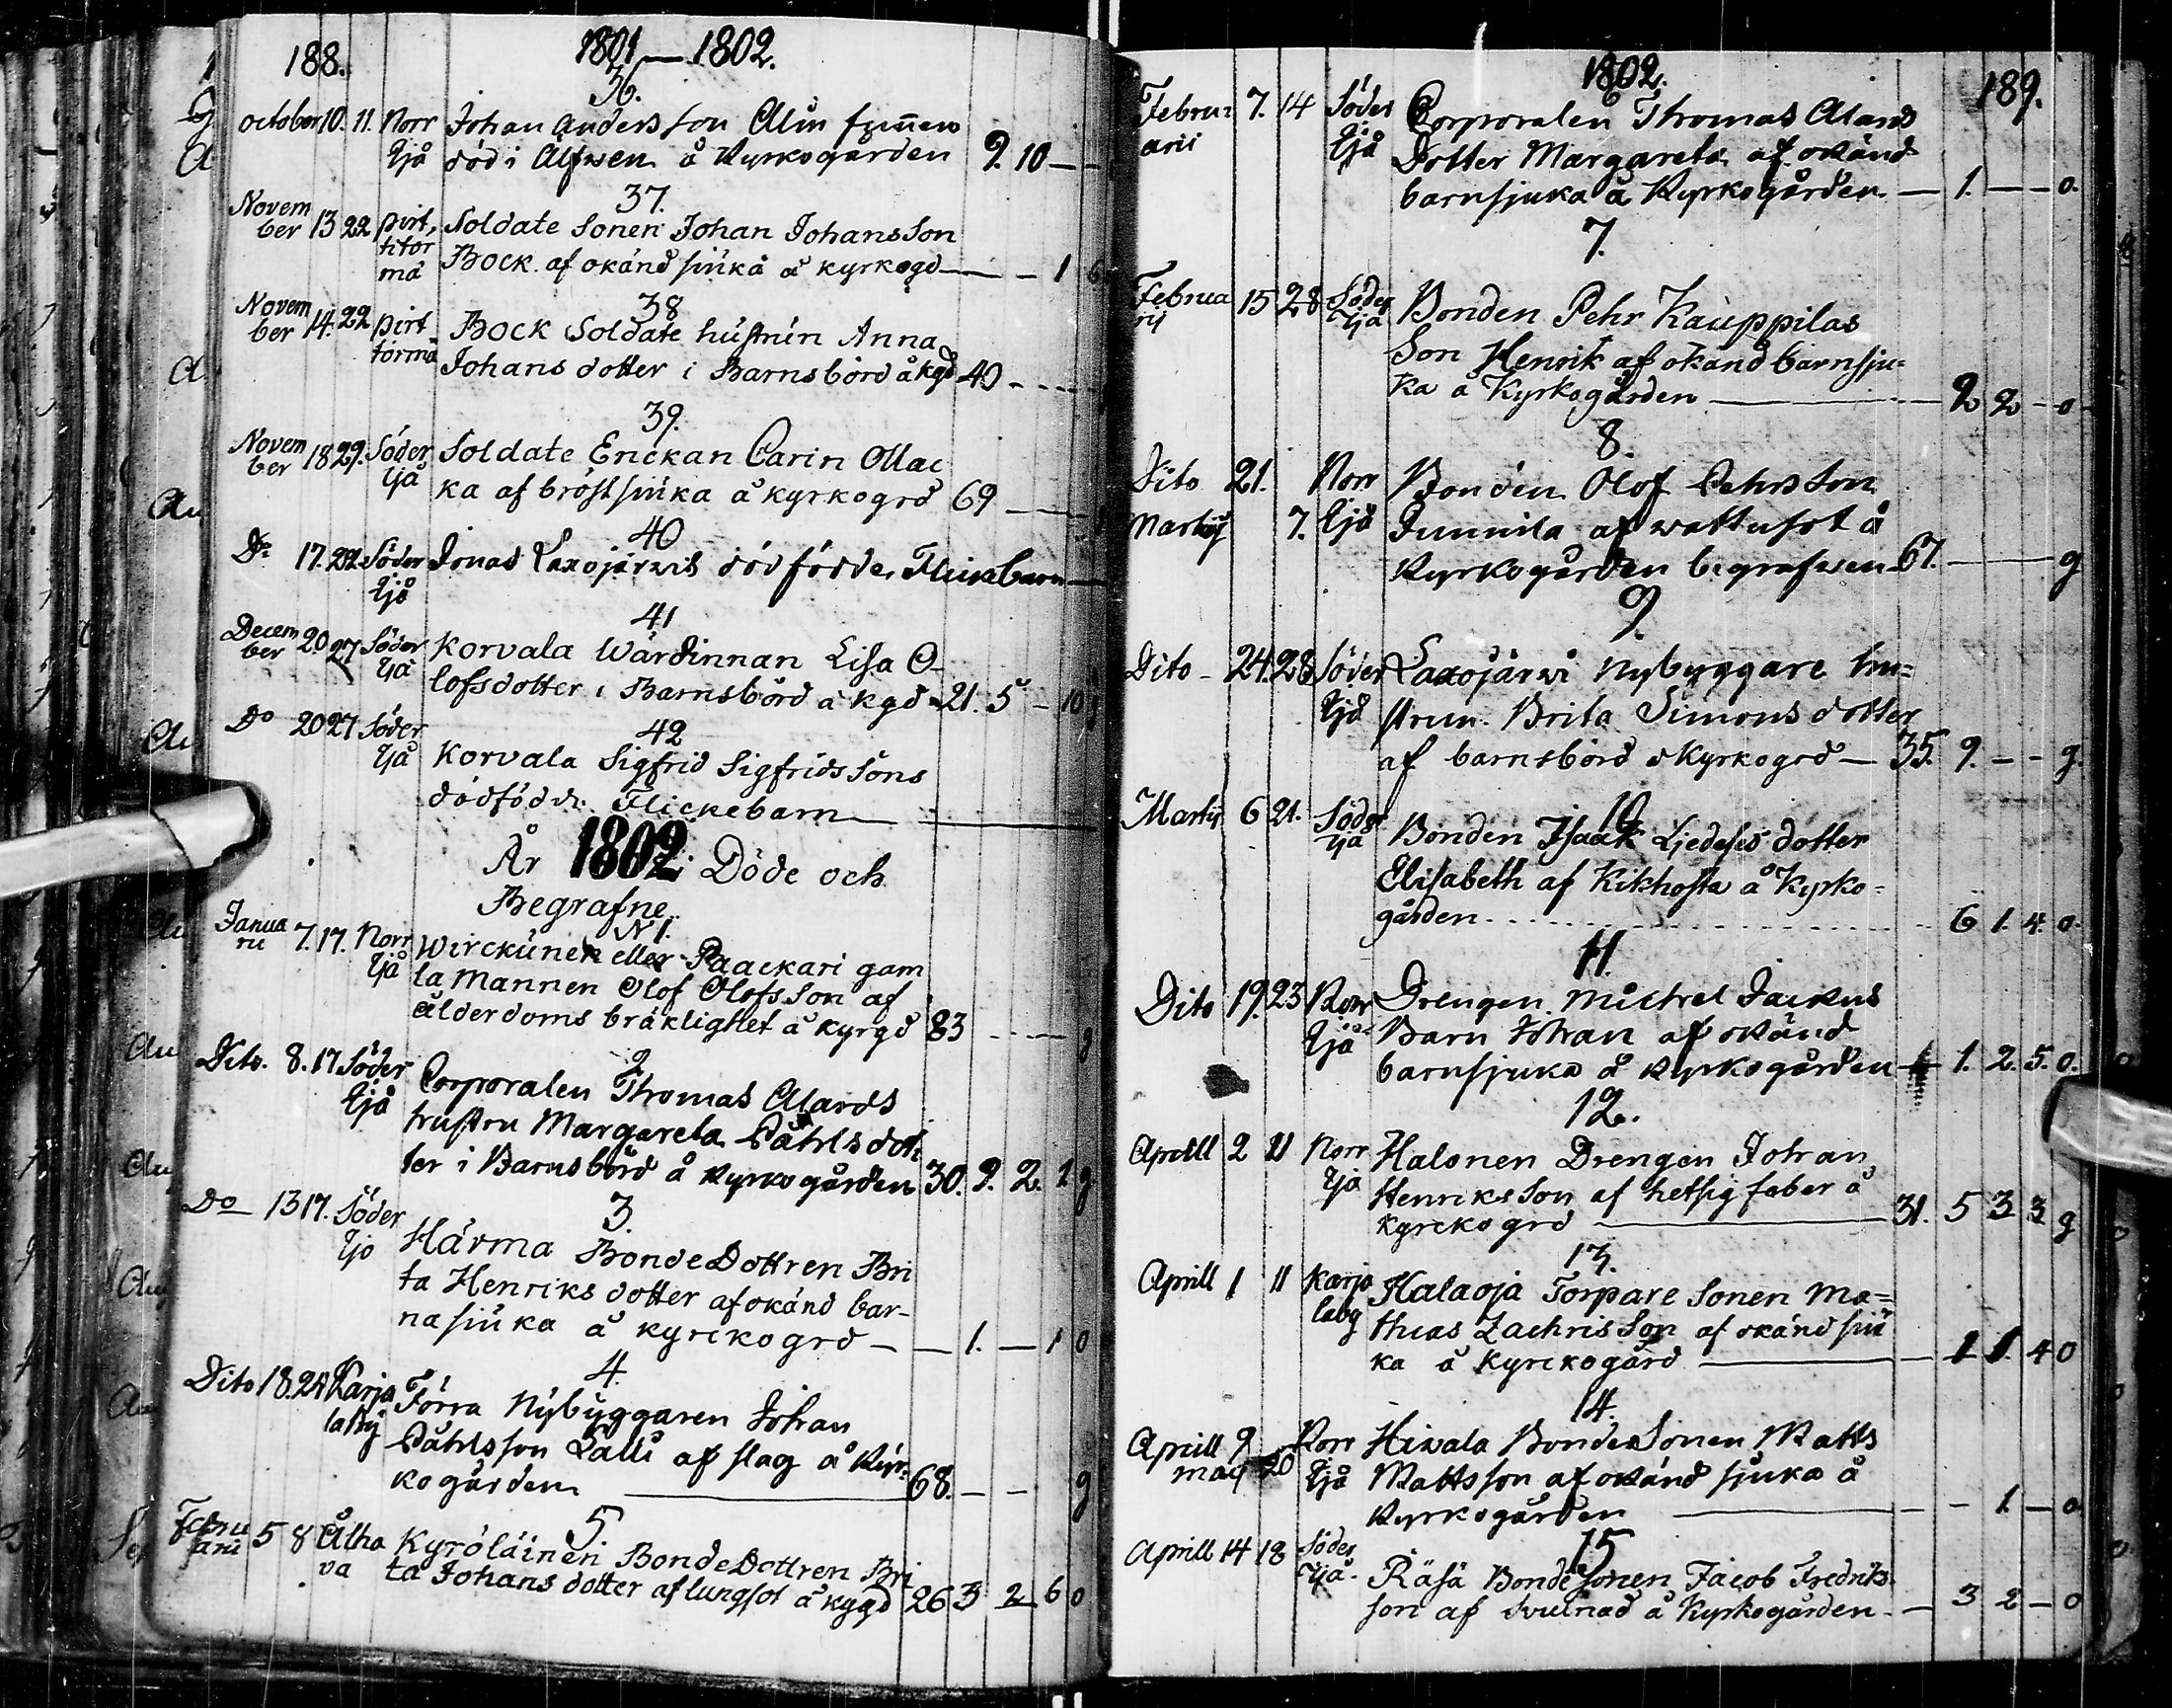 188.
1801 — 1802.
36.
October 10. 11. Norr Johan Andersson Alm funnen
ljå död i Älfwen å Kyrkogården 9. 10 —
37.
Novem 13 22 pirt, Soldate Sonen Johan Johansson
ber titor
må Bock. af okänd siuka å kyrkogd — 1 6
38
Novem 14. 22 pirt Bock Soldate hustrun Anna
ber törmä Johans dotter i Barnsbörd å kgd 40 - - -
39.
Novem 18 29. Söder Soldate Enckan Carin Ollac
ber ljå ka af bröst siuka å kyrkogrd 69 —
40
Do 17. 22 Söder Jonas Laxojärwis dödfödde Flickebarn —
ljå
41
Decem 20 27 Söder Korvala Wärdinnan Lisa O-
ber ljå lofsdotter i Barnsbörd å kgd - 21. 5 - 10
42
Do 20 27 Söder Korvala Sigfrid Sigfridssons
ljå dödfödde Flickebarn —
År 1802. Döde och
Begrafne.
N 1.
Janua 7. 17. Norr Wirckunen eller Paackari gam
rii ljå la Mannen Olof Olofsson af
ålderdoms bräklighet å kyrgd 83 - - - g
2
Dito. 8. 17 Söder Corporalen Thomas Alands
ljå hustru Margareta Påhlsdot-
ter i Barnsbörd å Kyrkogården 30. 9. 2. 1 g
3.
Do 13 17. Söder Härma BondeDottren Bri
ljo ta Henriks dotter af okänd bar-
nasiuka å kyrckogrd — — 1. — 1 0
4.
Dito 18. 24 Karja Törra Nybyggaren Johan
laby Påhlsson Lalli af slag å Kyr-
kogården — 68. — — g
5.
Febru 5 8 Alha Kyröläinen BondeDottren Bri
arii va ta Johans dotter af lungsot å kygd 26 3 2 6 0
1802.
189.
6
Febru- 7. 14 Söder Corporalen Thomas Alands
arii ljå Dotter Margareta af okänd
barnsjuka å Kyrkogården — 1. — — 0.
7.
Februa 15 28 Söder Bonden Pehr Kauppilas
rij ljå Son Henrik af okänd barnsju-
ka å Kyrkogården — 2 2 - 0
8.
Dito 21. Norr Bonden Olof Pehrsson
Martij 7. ljå Junnila af wattusot å
Kyrkogården begrafwen 67. — g
9.
Dito - 24. 28 Söder Laxojärwi Nybyggare hu-
ljå strun. Brita Simonsdotter
af barnsbörd å Kyrkogrd — 35. 9. - - g.
10
Martij 6 21. Söder Bonden Isaak Ljedes dotter
ljå Elisabeth af Kikhosta å Kyrko-
gården - - - 6 1. 4. 0.
11.
Dito 19. 23 Norr Drengen Michel Jackus
ljå Barn Johan af okänd
barnsjuka å Kyrkogården — 1. 2. 5. 0.
12.
Aprill 2 11 Norr Halonen Drengen Johan
ljå Henriksson af hetsig feber å
kyrckogrd — 31. 5 3 3 g
13.
Aprill 1 11 Karja Halaoja Torpare Sonen Ma-
laby thias Zachrisson af okänd siu
ka å Kyrckogård — 1 1. 4 0
14.
Aprill 9 Norr Hiwala Bonde Sonen Matts
maij 20 ljå Mattsson af okänd sjuka å
Kyrkogården — - 1. — 0
15
Aprill 14 18 Söder
ljå. Räsä Bonde Sonen Jacob Fredriks-
son af svulnad å Kyrkogården. — 3 2 — 0